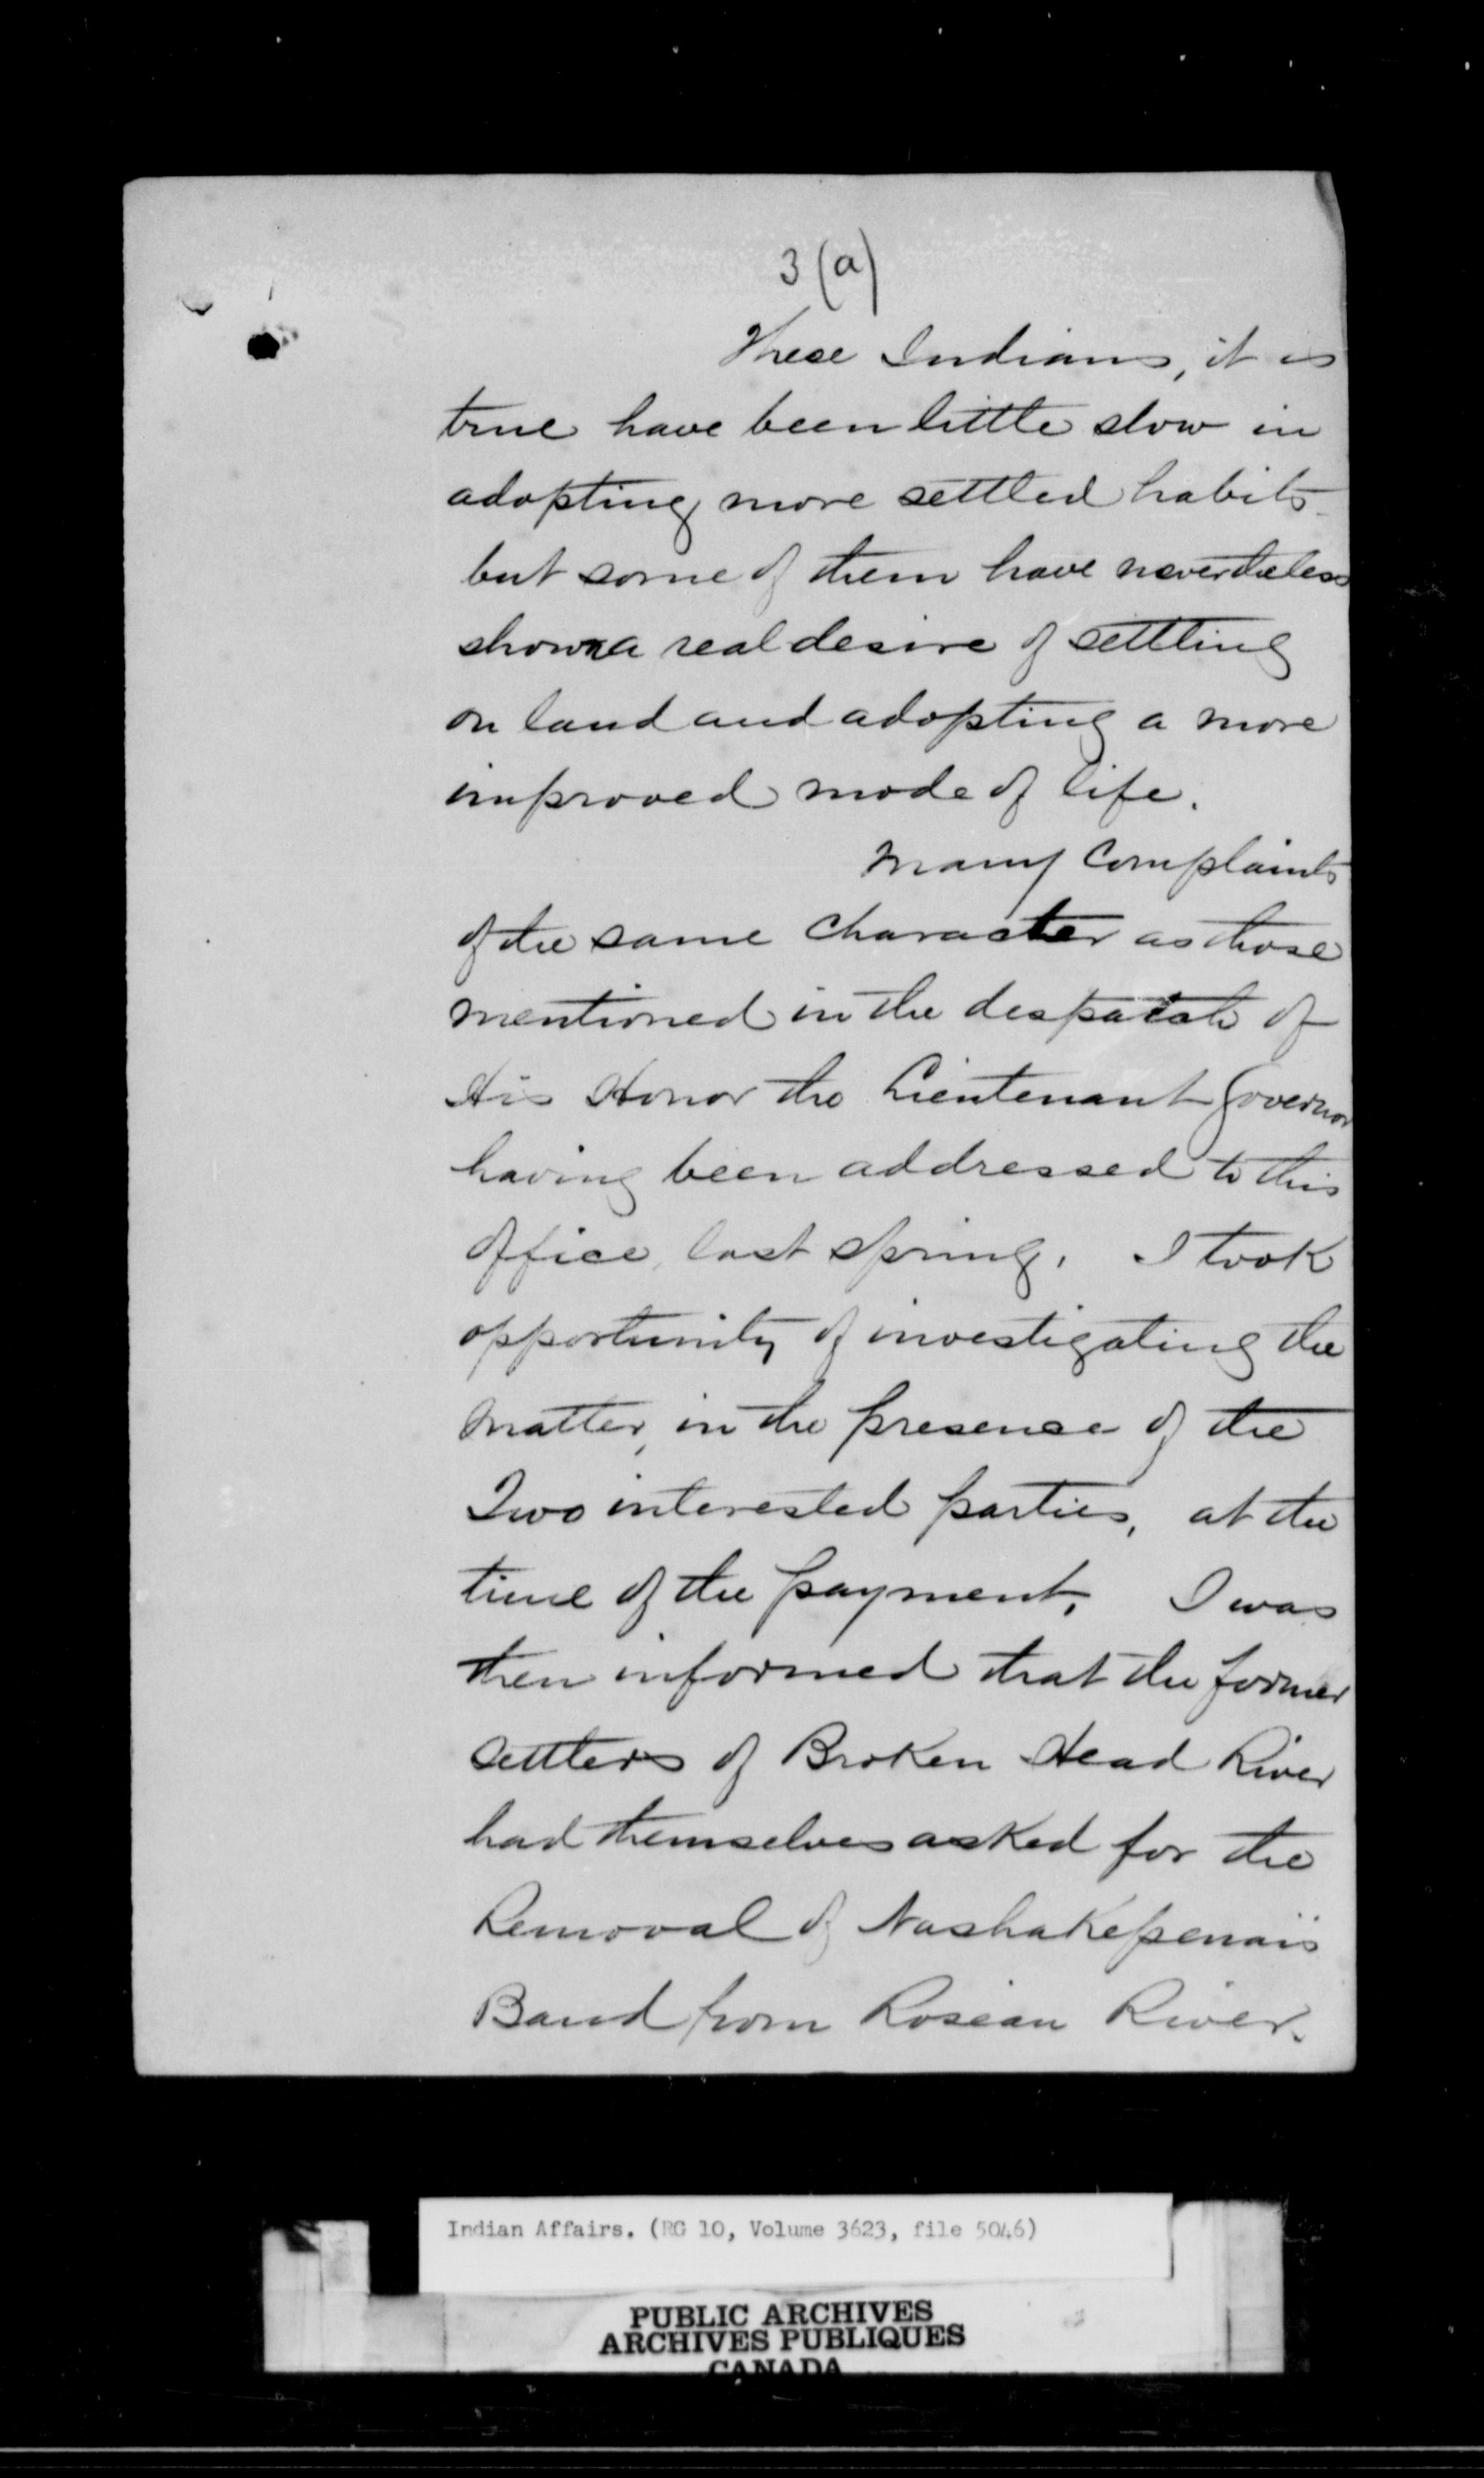 3 (a)
These Indians, it is
true have been little slow in
adopting more settled habits
but some of them have nevertheless
shown a real desire of settling
on land and adopting a more
improved mode of life.
Many Complaints
of the same Character as those
mentioned in the despatch of
His Honor the Lieutenant Governor
having been addressed to this
office, last Spring, I took
opportunity of investigating the
matter, in the presence of the
Two interested parties, at the
time of the payment, I was
then informed that the former
settlers of Broken Head River
had themselves asked for the
Removal of Nashakepenais
Band from Roseau River.
Indian Affairs. (RG 10, Volume 3623, file 5046)
PUBLIC ARCHIVES
ARCHIVES PUBLIQUES
CANADA